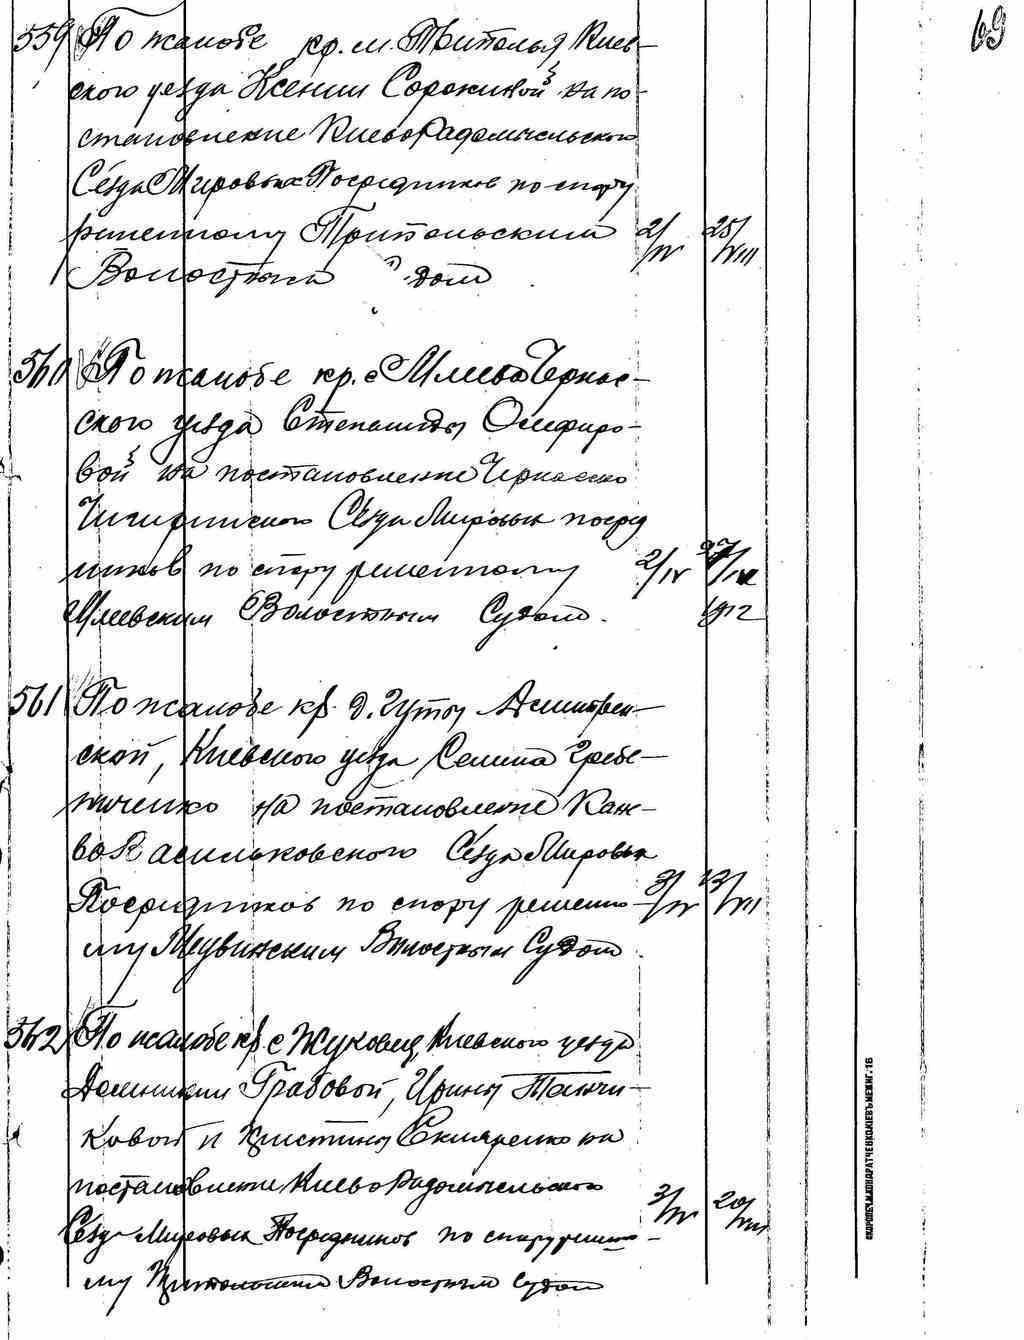 69
559 По жалобе кр. м. Триполья Киев-
ского уезда Ксении Сорокиной на по-
становление Киево Радомысльского
Съезда Мировых Посредников по спору
решенному Трипольским 2/IV 25/VIII
Волостным Судом
560 По жалобе кр. с Млиева Черкас-
ского уезда Степаниды Олефиро-
вой на постановление Черкасско
Чигиринского Съезда Мировых посред
ников по спору решенному 2/IV 27/IX
Млеевским Волостным Судом. 1912
561 По жалобе кр. д. Гуты
ской, Киевского уезда Семена Гребе-
ниченко на постановление Канe-
во Васильковского Съезда Мировых
Посредников по спору решенно- 3/IV 13/VIII
му Волостным Судом
562 По жалобе кр. с Жуковец, Киевского уезда
Доминикии Грабовой, Ирины Танчи-
ковой и Христины Скляренко на
постановление Киево Радомысльского 3/IV 20/VIII
Съезда Мировых Посредников по спору решенно-
му Трипольским Волостным Судом
СКОРОПЕЧ. М. КОНДРАТЧЕНКО, КІЕВЪ МЕЖИГ. 16